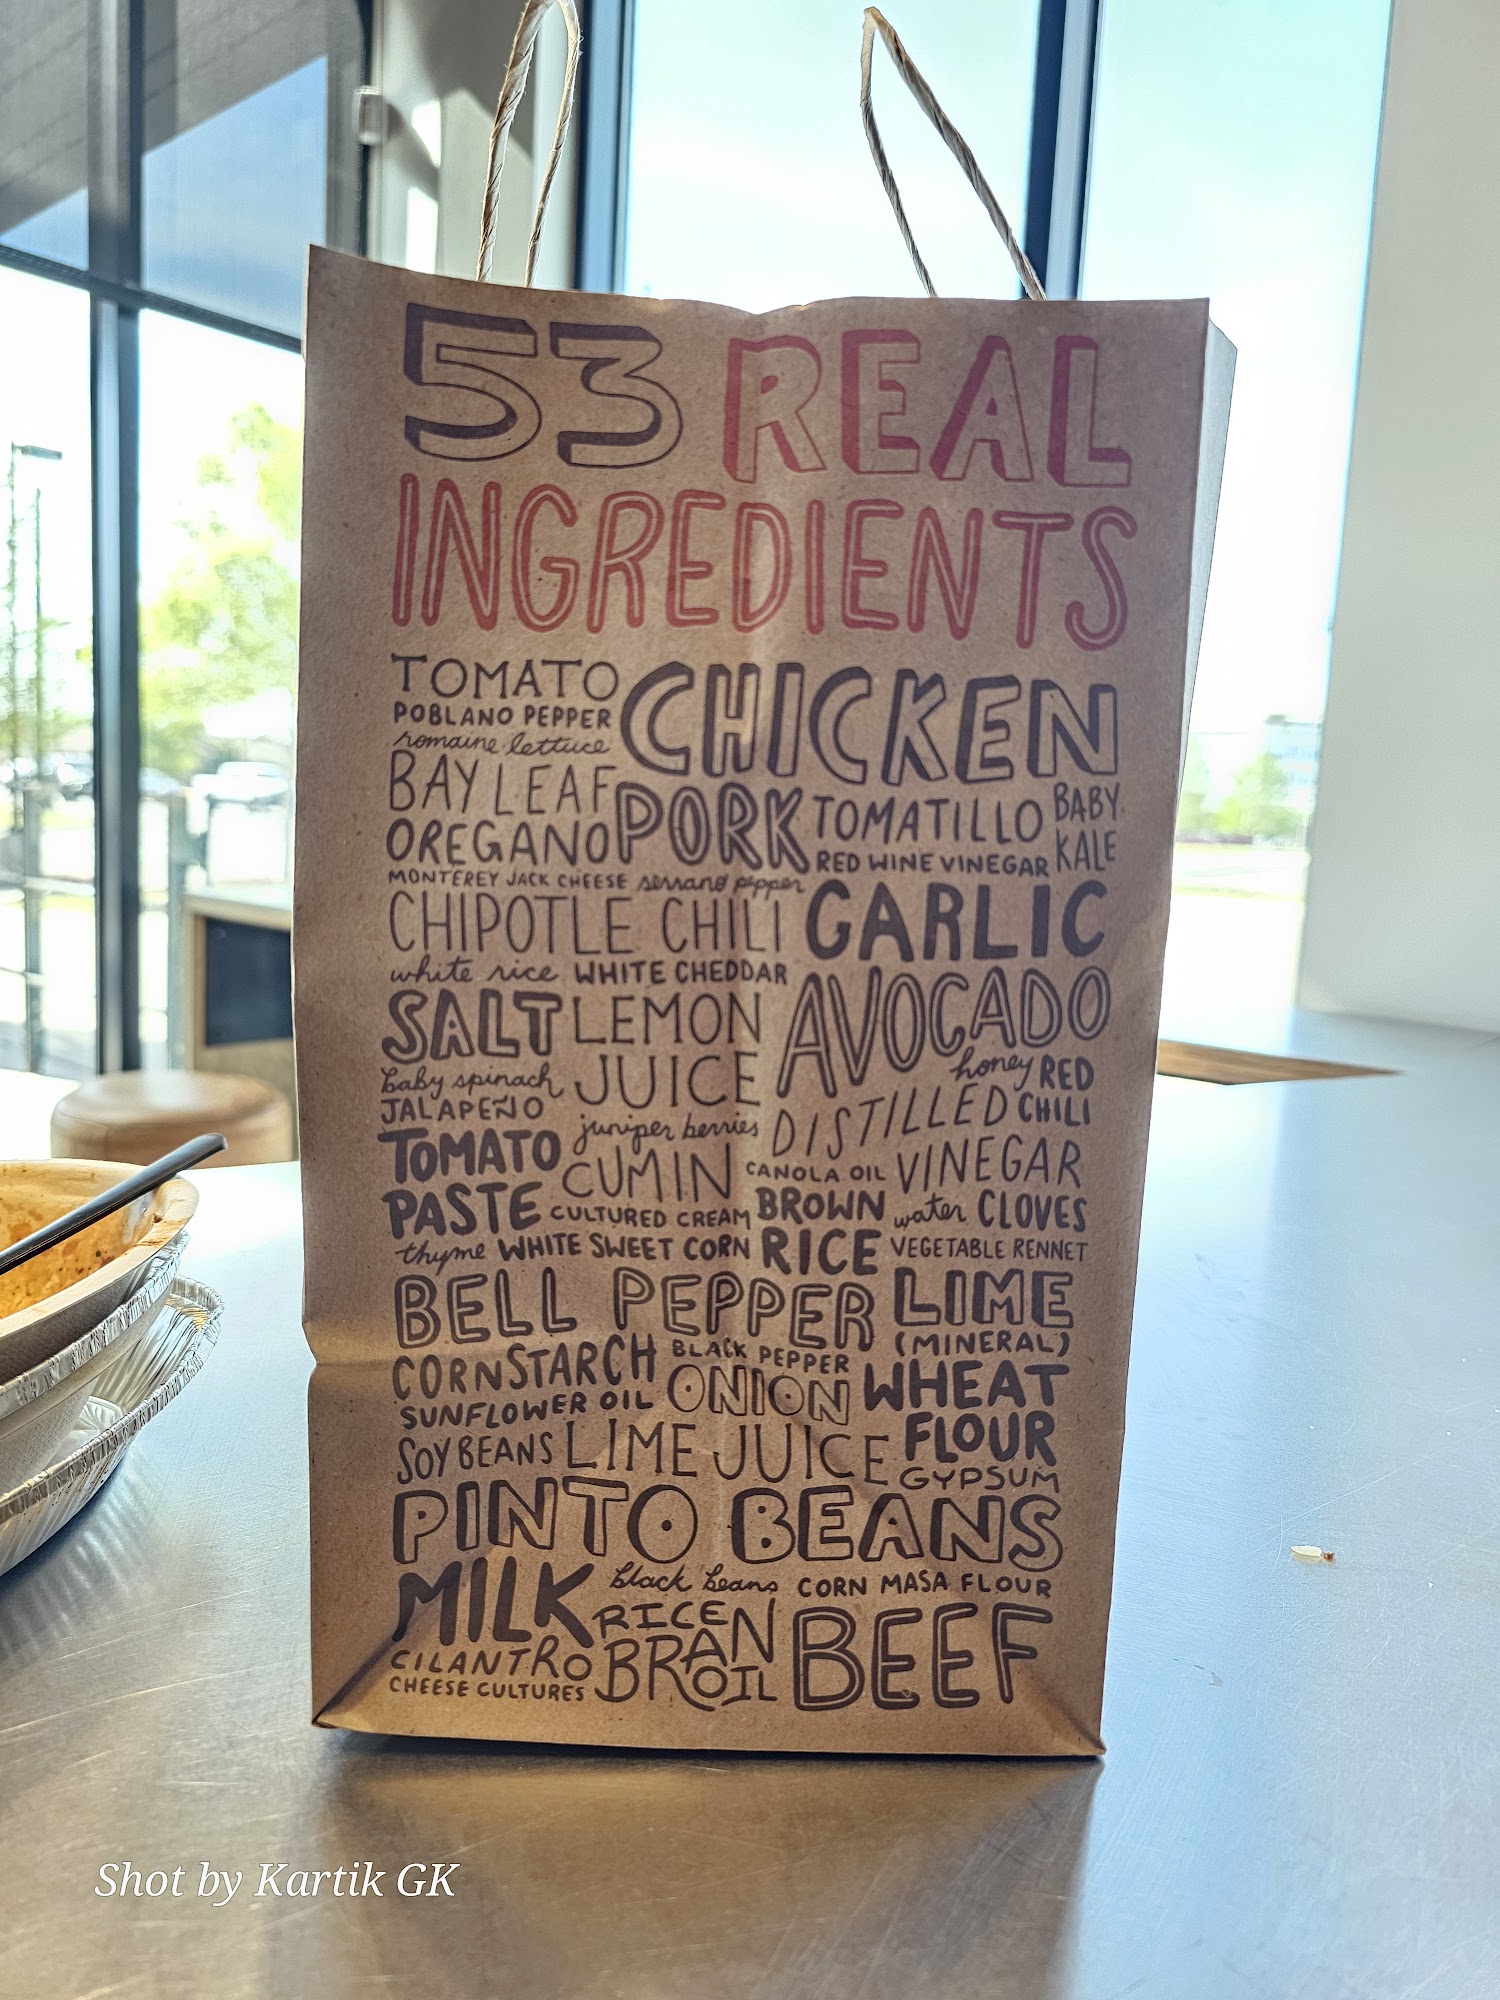 53 REAL
INGREDIENTS
TOMATO
POBLANO PEPPER
romaine lettuce
CHICKEN
BAY LEAF
OREGANO
PORK
TOMATILLO
BABY
KALE
RED WINE VINEGAR
MONTEREY JACK CHEESE serrano pepper
CHIPOTLE CHILI
GARLIC
white rice WHITE CHEDDAR
SALT
LEMON
JUICE
AVOCADO
baby spinach
JALAPEÑO
honey RED
CHILI
juniper berries
DISTILLED
VINEGAR
TOMATO
PASTE
CUMIN
CANOLA OIL
CULTURED CREAM
BROWN
RICE
water CLOVES
thyme WHITE SWEET CORN
VEGETABLE RENNET
BELL PEPPER
LIME
(MINERAL)
CORNSTARCH
BLACK PEPPER
SUNFLOWER OIL
ONION
WHEAT
FLOUR
SOYBEANS
LIME JUICE
GYPSUM
PINTO BEANS
MILK
black beans CORN MASA FLOUR
RICE
BRAN
OIL
BEEF
CILANTRO
CHEESE CULTURES
Shot by Kartik GK